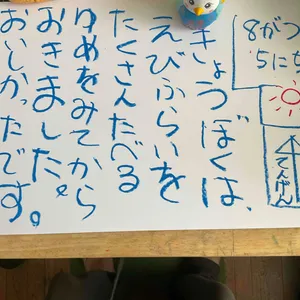 8がつ
5にち
てんげん
きょうぼくは、
えびふらいを
たくさんたべる
ゆめをみてから
おきました。
おいしかったです。